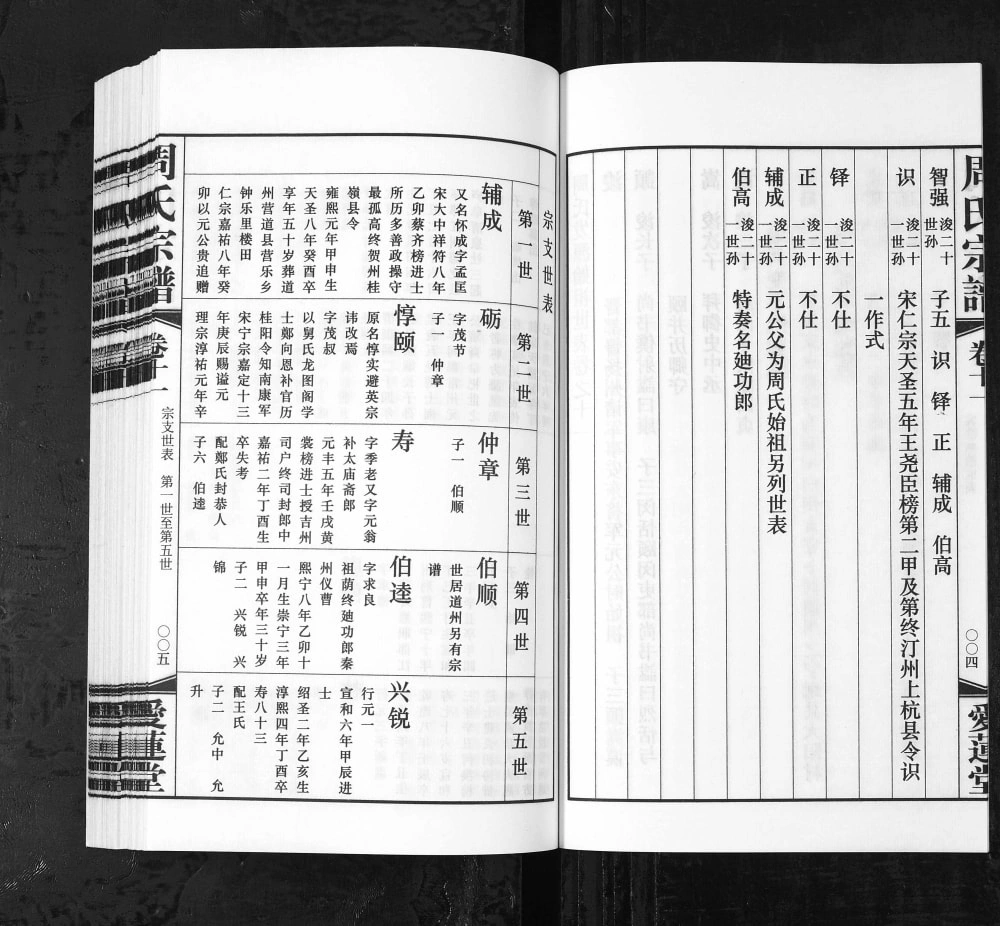 周氏宗譜
卷十一
〇〇四
愛蓮堂
智强 浚二十世孙 子五 识 铎 正 辅成 伯高
识 浚二十一世孙 宋仁宗天圣五年王尧臣榜第二甲及第终汀州上杭县令识
一作式
铎 浚二十一世孙 不仕
正 浚二十一世孙 不仕
辅成 浚二十一世孙 元公父为周氏始祖另列世表
伯高 浚二十一世孙 特奏名廸功郎
宗支世表
第一世
辅成
又名怀成字孟匡
宋大中祥符八年
乙卯蔡齐榜进士
所历多善政操守
最孤高终贺州桂
嶺县令
雍熙元年甲申生
天圣八年癸酉卒
享年五十岁葬道
州营道县营乐乡
钟乐里楼田
仁宗嘉祐八年癸
卯以元公贵追赠
第二世
砺
字茂节
子一 仲章
惇颐
原名惇实避英宗
讳改焉
字茂叔
以舅氏龙图阁学
士鄭向恩补官历
桂阳令知南康军
宋宁宗嘉定十三
年庚辰赐谥元
理宗淳祐元年辛
第三世
仲章
子一 伯顺
寿
字季老又字元翁
补太庙斋郎
元丰五年壬戌黄
裳榜进士授吉州
司户终司封郎中
嘉祐二年丁酉生
卒失考
配鄭氏封恭人
子六 伯逵
第四世
伯顺
世居道州另有宗
谱
伯逵
字求良
祖荫终廸功郎秦
州仪曹
熙宁八年乙卯十
一月生崇宁三年
甲申卒年三十岁
子二 兴锐 兴
锦
第五世
兴锐
行元一
宣和六年甲辰进
士
绍圣二年乙亥生
淳熙四年丁酉卒
寿八十三
配王氏
子二 允中 允
升
周氏宗譜
卷十一
宗支世表 第一世至第五世
〇〇五
愛蓮堂